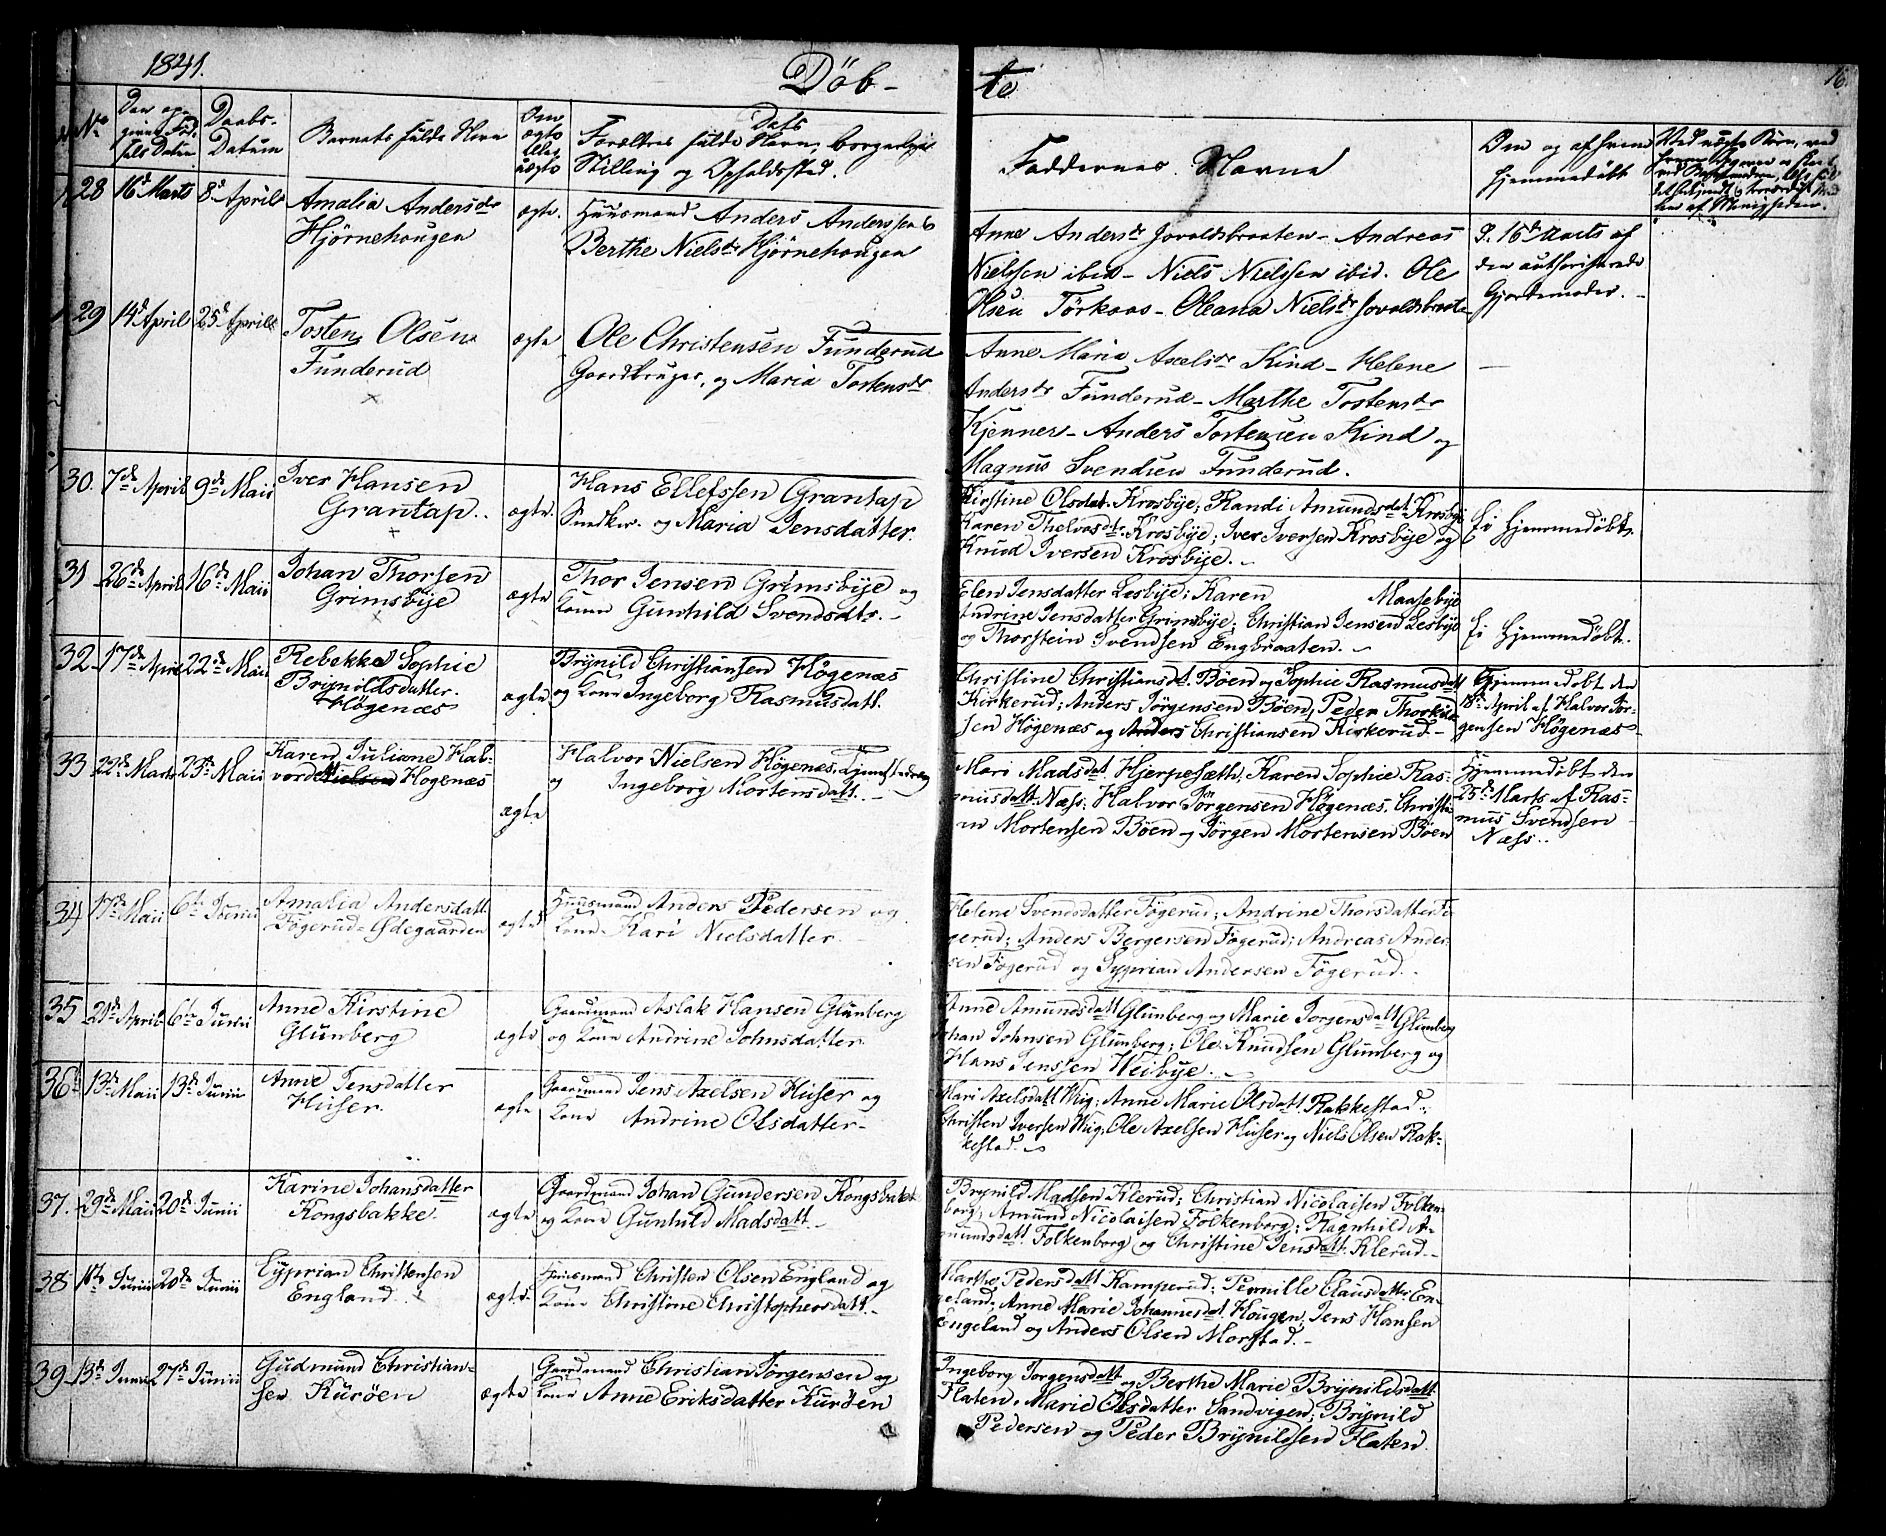 1841.
Døb-
te
16
No
Den op-
givne Fød-
sels Datum
Daabs-
Datum
Barnets fulde Navn
Om
ægte
eller
uægte
Forældres fulde Navn, borgerlige
Stilling og Opholdssted.
Faddernes Navne
Om og af hvem
hjemmedøbt
28 16de Marts 8de Aprils
Amalia Andersdr
Hjørnehougen
ægte.
Huusmand Anders Anderssen &
Berthe Nielsdr Hjørnehougen
Anne Andersdr Jovaldsbraaten - Andreas
Nielssen ibid - Niels Nielssen ibid. Ole
Olsen Törkaas - Oleana Nielsdr Jovaldsbraate
D. 16de Marts af
den authoriserede
Gjordemoder.
29 14de April 25de Aprils
Tosten Olsen
Funderud
ægte
Ole Christensen Funderud
Gaardbruger, og Maria Tostensdr
Anne Maria Axelsdr Kind - Helene
Andersdr Funderud - Marthe Tostensdr
Kjenner - Anders Tostensen Kind og
Magnus Svendsen Funderud.
30. 7de April 9de Maii
Iver Hansen
Grantap.
ægte.
Hans Ellefssen Grantap
Snedker. og Maria Jensdatter.
Kirstine Olsdat. Krosbÿe; Randi Amundsdat Krosbÿe
Karen Thelvasdtr. Krosbÿe; Iver Iversen Krosbÿe og
Knud Iversen Krosbÿe.
Ei Hjemmedøbt.
31 26de April 16de Maii
Johan Thorsen
Grimsbÿe
ægte
Thor Jensen Grimsbÿe og
Kone Gunhild Svendsdtr.
Elen Jensdatter Lesbÿe; Karen Maasebÿe
Andrine Jensdatter Grimsbÿe; Christian Jensen Lesbÿe
og Thorstein Svendsen Engbraaten.
Ei Hjemmedøbt.
32 17de April 22de Maii
Rebekka Sophie
Brÿnildsdatter.
Høgenæs
ægte
Brÿnild Christiansen Høgenæs
og Kone Ingeborg Rasmusdatt.
Christine Christiansdt. Bøen og Sophie Rasmusdatt
Kirkerud; Anders Jörgensen Bøen, Peder Thorkild
sen Høgenæs og Anders Christiansen Kirkerud.
Hjemmedøbt den
18de April af Halvor Jör-
gensen Høgenæs
33 22de Marts 23de Maii
Karen Juliane Hal-
vordatt Høgenæs
ægte
Halvor Nielsen Høgenæs, Tjenestedreng
og Ingeborg Mortensdatt.
Mari Madsdat Hjerpesæth. Karen Sophie Ras-
musdatt Næss; Halvor Jörgensen Høgenæs. Christi-
an Mortensen Bøen og Jörgen Mortensen Bøen
Hjemmedøbt den
25de Marts af Ras-
mus Svendsen
Næss.
34 17de Maii 6te Junii
Amalia Andersdatt
Fögerud-Ødegaarden
ægte
Huusmand Anders Pedersen og
Kone Kari Nielsdatter.
Helene Svendsdatter Fögerud; Andrine Thorsdatter Fö-
gerud; Anders Bergersen Fögerud; Andreas Ander-
sen Fögerud og Syprian Andersen Fögerud.
35 21de April 6te Junii
Anne Kirstine
Glünberg
ægte
Gaardmand Aslak Hansen Glünberg
og Kone Andrine Johnsdatter
Anne Amundsdatt Glünberg og Marie Jorgensdatt Glünberg
Johan Johnsen Glünberg; Ole Knudsen Glünberg og
Hans Jenssen Heibÿe.
36 13de Maii 13de Junii
Anne Jensdatter
Huser.
ægte
Gaardmand Jens Axelsen Huser og
Kone Andrine Olsdatter
Mari Axelsdatt Wiig; Anne Marie Olsdatt. Rakkestad;
Christen Iversen Wiig; Ole Axelsen Huser og Niels Olsen Rak-
kestad.
37. 29de Maii 20de Junii
Karine Johansdatter
Kongsbakke.
ægte
Gaardmand Johan Gundersen Kongsbakke
og Kone Gunhild Madsdatt.
Brÿnild Madsen Klerud; Christian Nicolaisen Folken-
borg; Amund Nicolaisen Folkenborg; Ragnhild A-
mundsdatt Folkenborg og Christine Jensdatt. Klerud.
38 1te Junii 20de Junii
Cyprian Christensen
England.
ægte.
Huusmand Christen Olsen England og
Kone Christine Christophersdatt.
Marthe Pedersdatt Kamperud; Pernille Clausdatter En-
geland; Anne Marie Johannesdat. Hougen; Jens Hansen
Engeland og Anders Olsen Morstad.
39 13de Junii 27de Junii
Gudmund Christian-
sen Kurøen
ægte
Gaardmand Christian Jörgensen og
Kone Anne Eriksdatter Kurøen
Ingeborg Jorgensdatt og Berthe Marie Brÿnildsdatt
Flaten; Marie Olsdatter Sandvigen; Brÿnild
Pedersen og Peder Brÿnildsen Flaten.